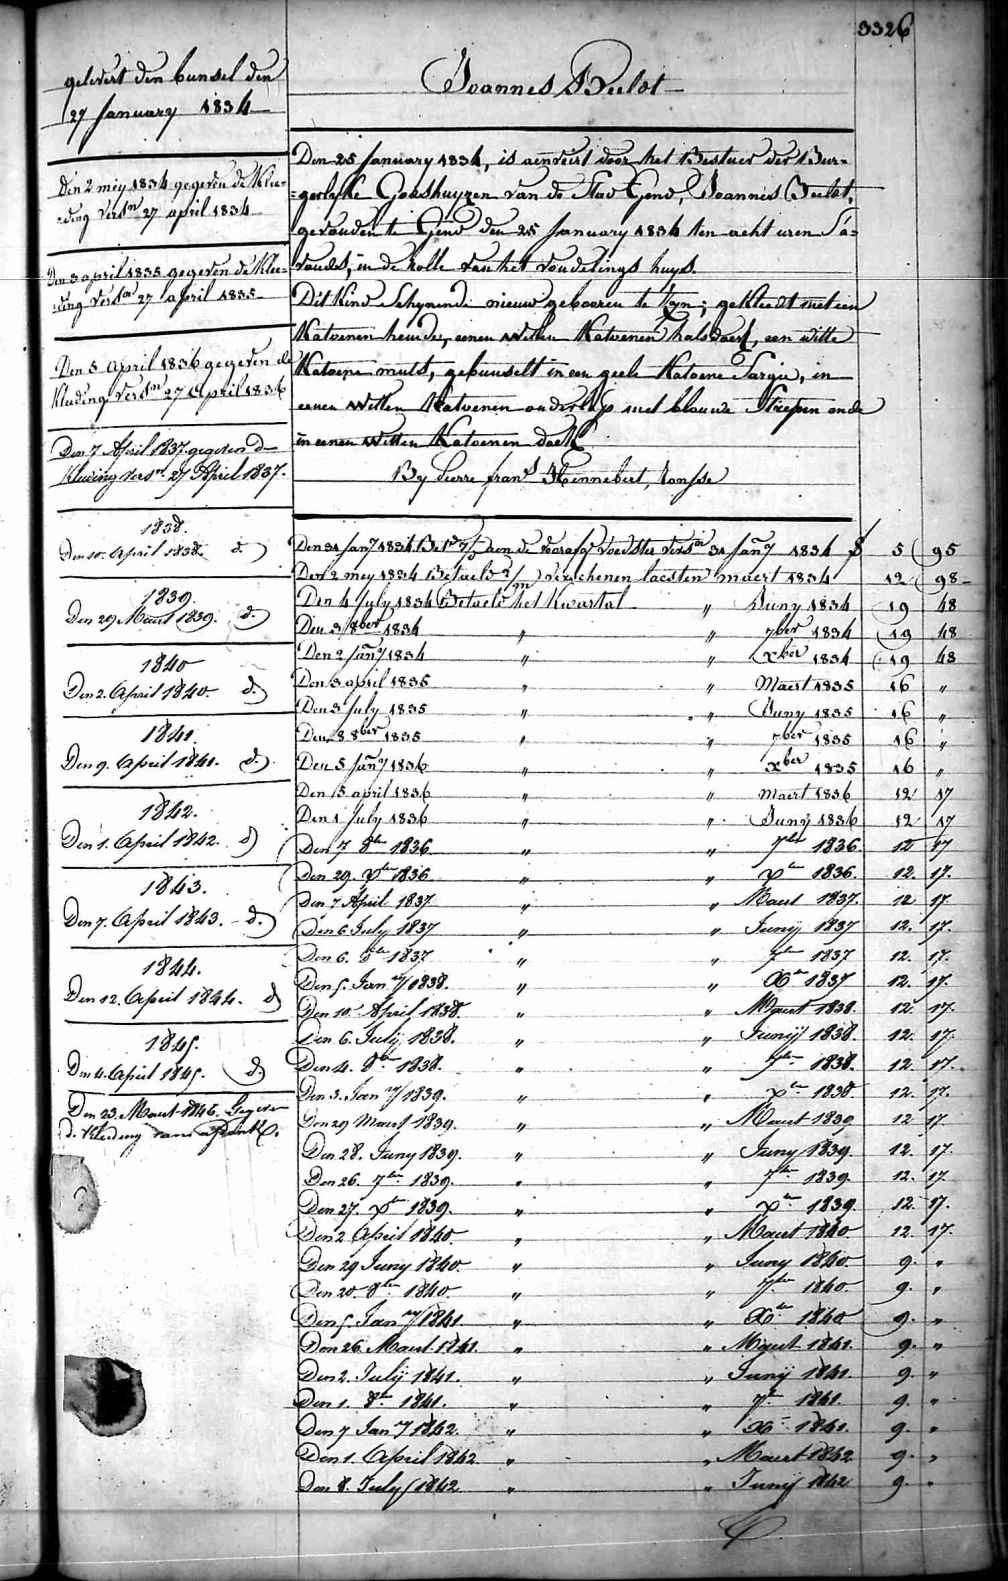 3326
gelevert den bunsel den
27 January 1834
Den 2 mey 1834 gegeven de Klee-
-ding versn 27 april 1834
Den 3 april 1835 gegeven de Klee-
-ding versn 27 april 1835
Den 5 April 1836 gegeven de
Kleeding versn 27 April 1836
Den 7 April 1837 gegeven d
Kleeding versn 27 April 1837.
1838.
Den 10. April 1838. d.
1839.
Den 29 Maert 1839. d.
1840
Den 2. April 1840. d.
1841.
Den 9. April 1841. d.
1842.
Den 1. April 1842. d
1843.
Den 7. April 1843. d.
1844.
Den 12. April 1844. d
1845.
Den 4. April 1845. d
Den 23. Maert 1846. Gegeven
d. Kleeding van
Joannes Beelot
Den 25 January 1834, is aenveert door het Bestuer der Bur-
-gerlyke Godshuyzen van de Stad Gend, Joannes Beelot,
gevonden te Gend den 25 January 1834 ten acht uren Sa-
vonds, in de rolle van het vondelings huys.
Dit Kind Schynende nieuw geboren te Zyn; gekleedt met een
Katoenen hemde, eenen witten Katoenen halsdoek, een witte
Katoene muts, gebunselt in een geele Katoene Sargie, in
eenen witten Katoenen onderlap met blauwe Streepen ende
in eenen witten Katoenen doek
By Pierre frans Hennebert, Ronsse
Den 31 Jany 1834 Betd aen de voedster versn 31 Jany 1834 5 95
Den 2 mey 1834 Betaelt 2/m verschenen laesten maert 1834 12 98
Den 4 July 1834 Betaelt het Kwartal " Juny 1834 19 48
Den 3 8ber 1834 " " 7ber 1834 19 48
Den 2 Jany 1834 " " xber 1834 19 48
Den 3 april 1835 " " Maert 1835 16 "
Den 3 July 1835 " " Juny 1835 16 "
Den 8 8ber 1835 " " 7ber 1835 16 "
Den 5 Jany 1836 " " xber 1835 16 "
Den 15 april 1836 " " Maert 1836 12 17
Den 1 July 1836 " " Juny 1836 12 17
Den 7 8br 1836 " " 7br 1836. 12 17
Den 29. xbr 1836 " " xbr 1836. 12. 17.
Den 7 April 1837 " " Maert 1837. 12 17.
Den 6 July 1837 " " Juny 1837 12. 17.
Den 6. 8br 1837 " " 7br 1837 12. 17.
Den 5. Jany 1838. " " Xbr 1837 12. 17.
Den 10. April 1838. " " Maert 1838. 12. 17.
Den 6. July 1838. " " Juny 1838. 12. 17.
Den 4. 8br 1838. " " 7br 1838. 12. 17.
Den 3. Jany 1839. " " xbr 1838 12. 17.
Den 29 Maert 1839. " " Maert 1839 12 17.
Den 28. Juny 1839. " " Juny 1839. 12. 17.
Den 26. 7br 1839. " " 7br 1839. 12. 17.
Den 27. xbr 1839. " " xbr 1839. 12. 17.
Den 2 April 1840. " " Maert 1840 12. 17.
Den 29 Juny 1840. " " Juny 1840. 9. "
Den 20. 8br 1840. " " 7br 1840. 9. "
Den 5. Jany 1841. " " Xbr 1840 9. "
Den 26. Maert 1841. " " Maert 1841. 9. "
Den 2. July 1841. " " Juny 1841. 9. "
Den 1. 8br 1841. " " 7br 1841. 9. "
Den 7 Jany 1842. " " Xbr 1841. 9. "
Den 1. April 1842 " " Maert 1842 9. "
Den 8. July 1842 " " Juny 1842 9. "